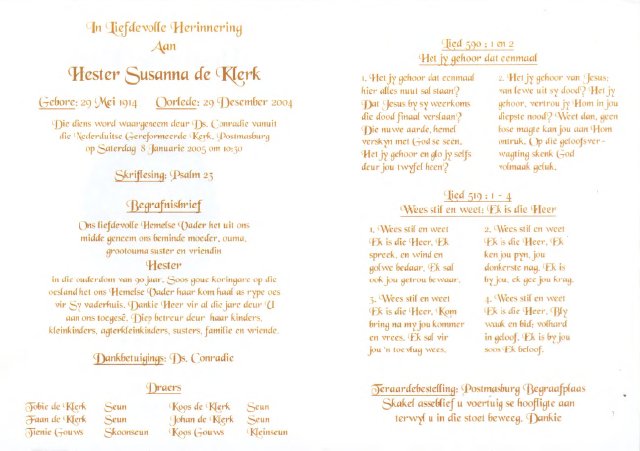 In Liefdevolle Herinnering
Aan
Hester Susanna de Klerk
Gebore: 29 Mei 1914 Oorlede: 29 Desember 2004
Die diens word waargeneem deur Ds. Conradie vanuit
die Nederduitse Gereformeerde Kerk, Postmasburg
op Saterdag 8 Januarie 2005 om 10:30
Skriflesing: Psalm 23
Begrafnisbrief
Ons liefdevolle Hemelse Vader het uit ons
midde geneem ons beminde moeder, ouma,
grootouma suster en vriendin
Hester
in die ouderdom van 90 jaar. Soos goue koringare op die
oesland het ons Hemelse Vader haar kom haal as rype oes
vir Sy vaderhuis. Dankie Heer vir al die jare deur U
aan ons toegesê. Diep betreur deur haar kinders,
kleinkinders, agterkleinkinders, susters, familie en vriende.
Dankbetuigings: Ds. Conradie
Draers
Tobie de Klerk Seun Koos de Klerk Seun
Faan de Klerk Seun Johan de Klerk Seun
Tienie Gouws Skoonseun Koos Gouws Kleinseun
Lied 590 : 1 en 2
Het jy gehoor dat eenmaal
1. Het jy gehoor dat eenmaal
hier alles nuut sal staan?
Dat Jesus by sy weerkoms
die dood finaal verslaan?
Die nuwe aarde, hemel
verskyn met God se seën.
Het jy gehoor en glo jy selfs
deur jou twyfel heen?
2. Het jy gehoor van Jesus;
van lewe uit sy dood? Het jy
gehoor, vertrou jy Hom in jou
diepste nood? Weet dan, geen
bose magte kan jou aan Hom
ontruk. Op die geloofsver-
wagting skenk God
volmaak geluk.
Lied 519 : 1 - 4
Wees stil en weet: Ek is die Heer
1. Wees stil en weet
Ek is die Heer. Ek
spreek, en wind en
golwe bedaar. Ek sal
ook jou getrou bewaar.
2. Wees stil en weet
Ek is die Heer. Ek
ken jou pyn, jou
donkerste nag. Ek is
by jou, ek gee jou krag.
3. Wees stil en weet
Ek is die Heer. Kom
bring na my jou kommer
en vrees. Ek sal vir
jou 'n toevlug wees.
4. Wees stil en weet
Ek is die Heer. Bly
waak en bid; volhard
in geloof. Ek is by jou
soos Ek beloof.
Teraardebestelling: Postmasburg Begraafplaas
Skakel asseblief u voertuig se hoofligte aan
terwyl u in die stoet beweeg. Dankie